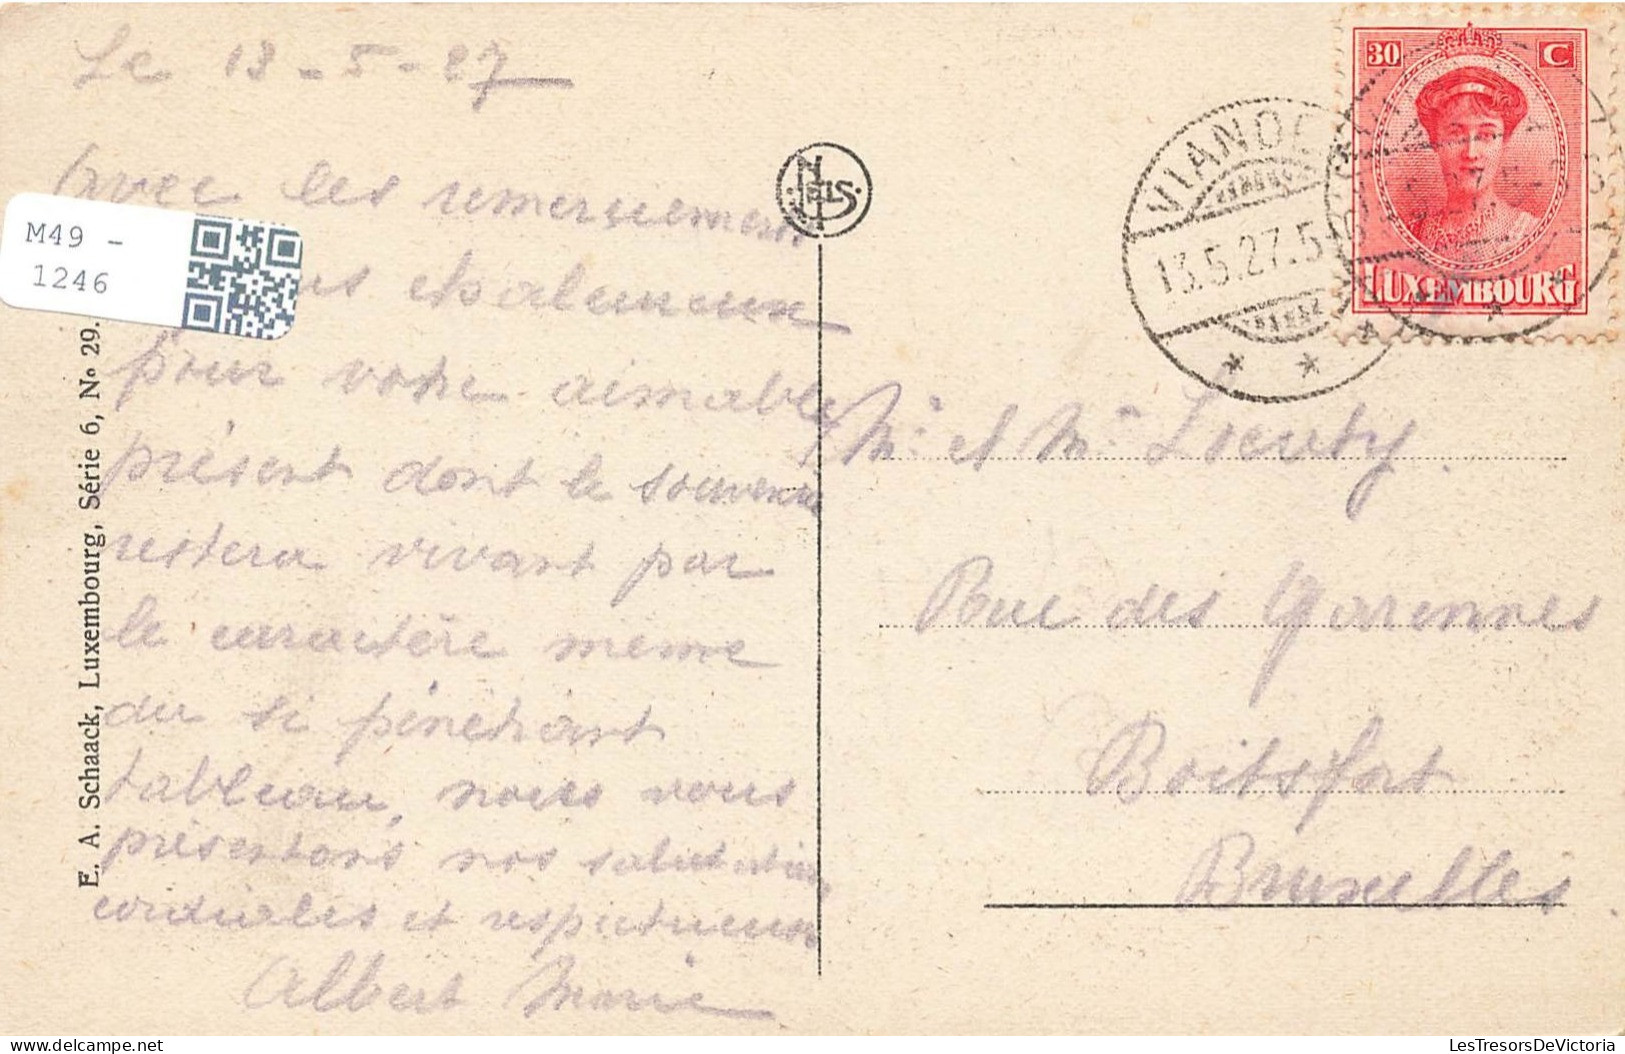 Le 13-5-27
Avec les remerciements
chaleureux
pour votre aimable
présent dont le souvenir
restera vivant par
le caractère meme
du si pénétrant
tableau, nous vous
présentons nos salutations
cordiales et respectueuses
Albert Marie
M49 -
1246
E. A. Schaack, Luxembourg, Série 6, No 29.
NELS
VIANDE
13.5.27.5
30 C
LUXEMBOURG
Mr et Me
Rue des Garennes
Boitsfort
Bruxelles
LesTresorsDeVictoria
LesTresorsDeVictoria.com